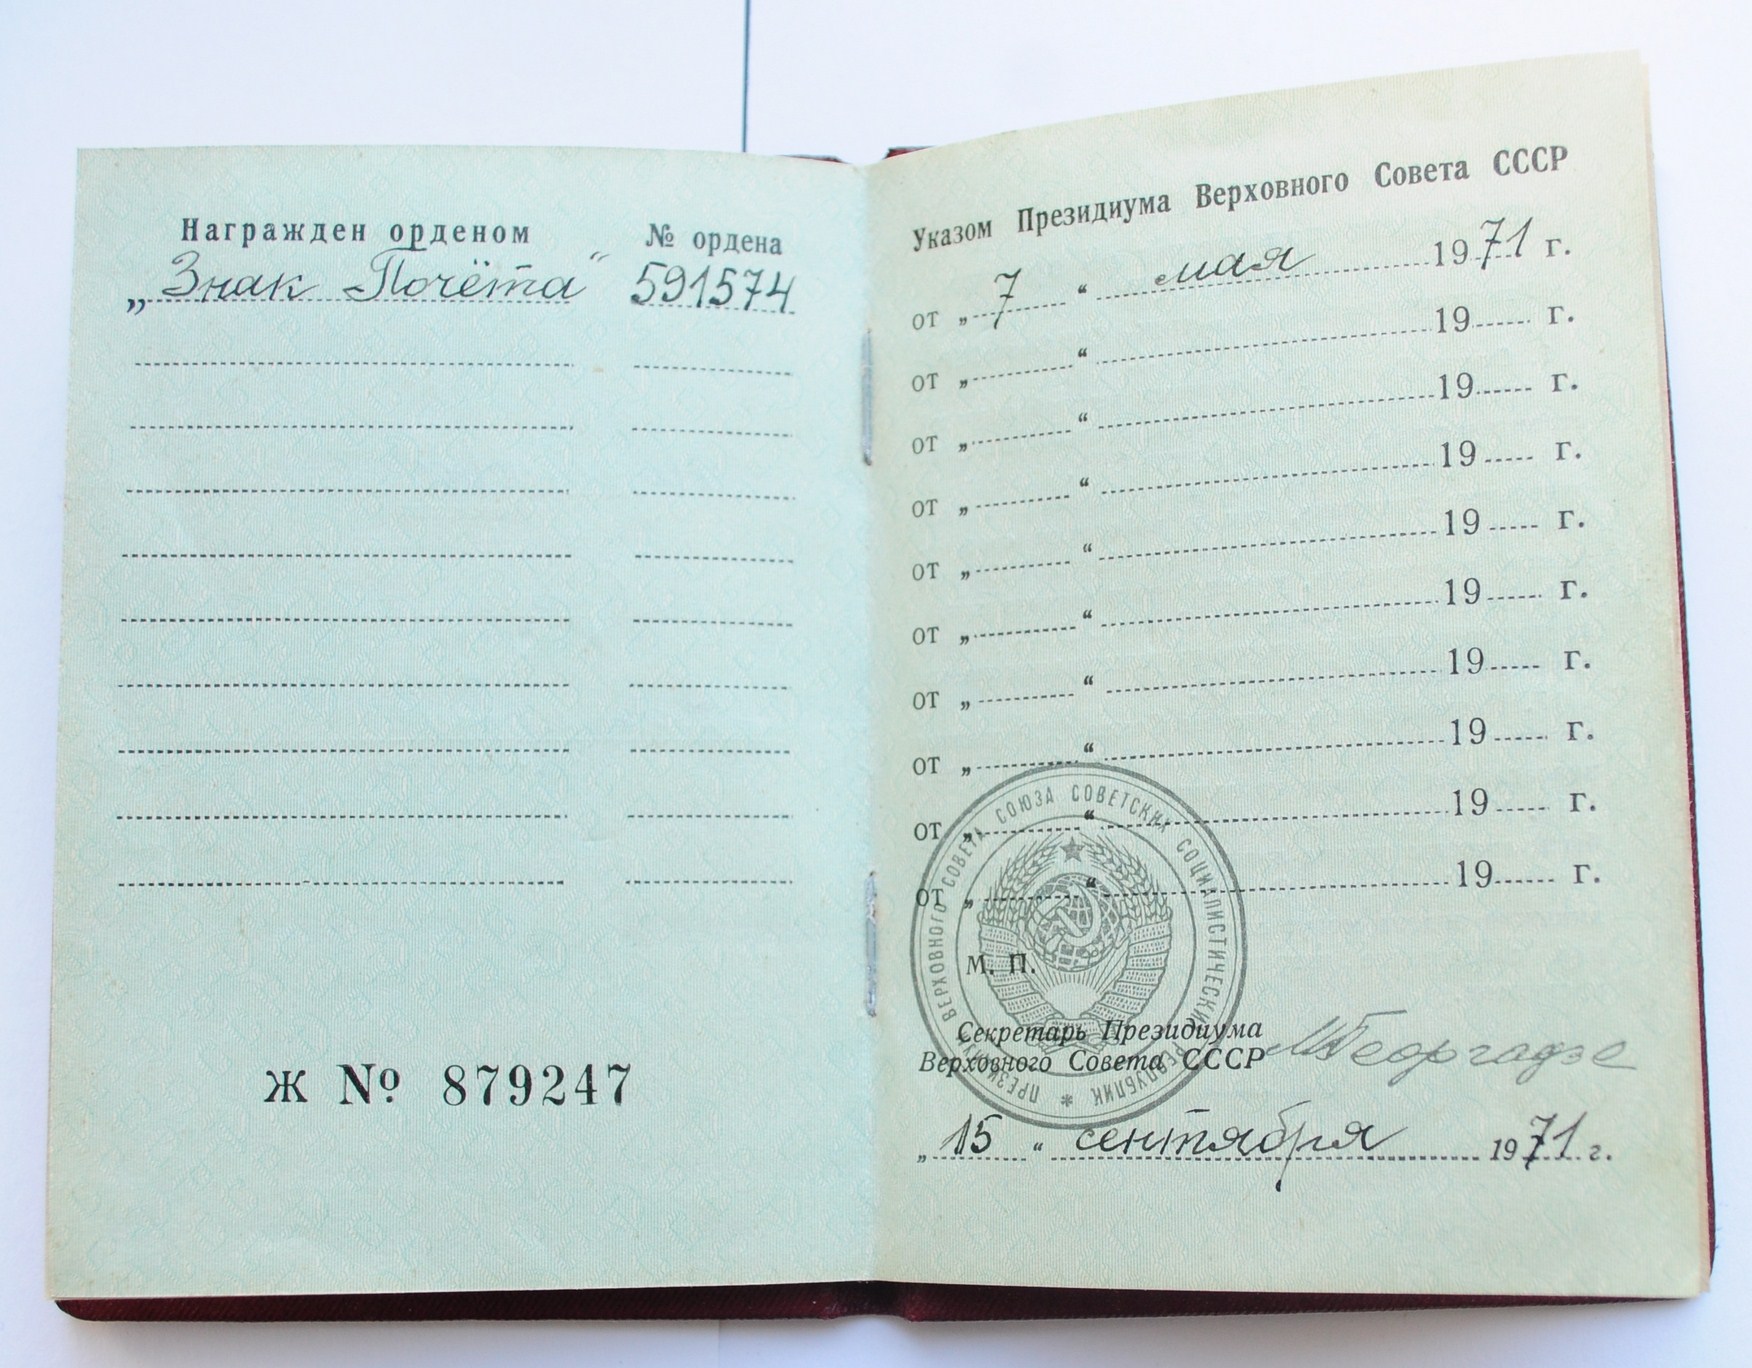 Награжден орденом № ордена
„Знак Почёта“ 591574
Ж № 879247
Указом Президиума Верховного Совета СССР
от „7“ мая 1971 г.
от „ “ 19 г.
от „ “ 19 г.
от „ “ 19 г.
от „ “ 19 г.
от „ “ 19 г.
от „ “ 19 г.
от „ “ 19 г.
от „ “ 19 г.
от „ “ 19 г.
ПРЕЗИДИУМ ВЕРХОВНОГО СОВЕТА СОЮЗА СОВЕТСКИХ СОЦИАЛИСТИЧЕСКИХ РЕСПУБЛИК *
М. П.
Секретарь Президиума
Верховного Совета СССР МГеоргадзе
„15“ сентября 1971 г.